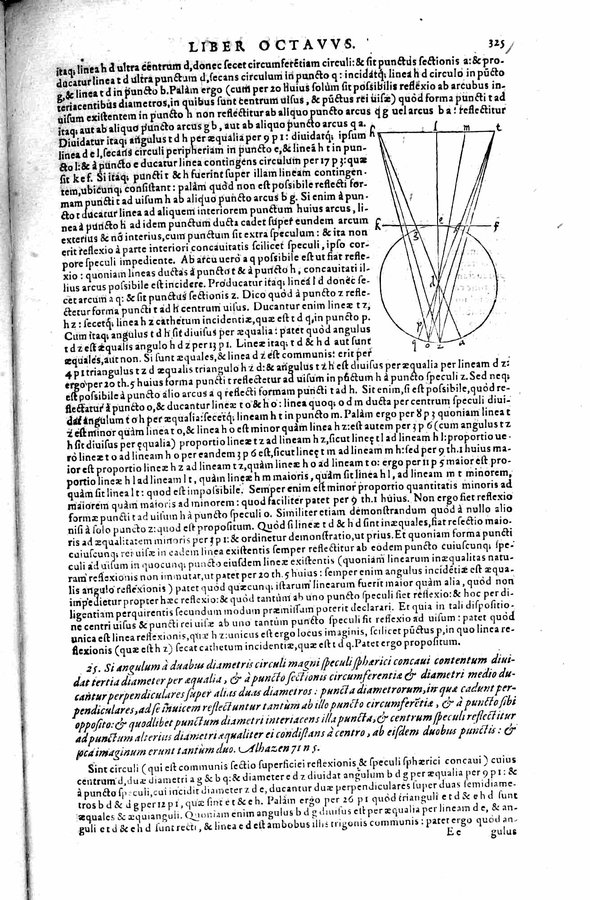 LIBER OCTAVVS. 325
itaq; linea h d ultra centrum d, donec secet circumferẽtiam circuli: & sit punctus sectionis a: & pro-
ducatur linea t d ultra punctum d, secans circulum in puncto q: incidatq́; linea h d circulo in pũcto
g, & linea t d in puncto b. Palàm ergo (cum per 20 huius solùm sit possibilis reflexio ab arcubus in-
teriacentibus diametros, in quibus sunt centrum uisus, & pũctus rei uisæ) quòd forma pũcti t ad
uisum existentem in puncto h non reflectitur ab aliquo puncto arcus q g uel arcus b a: reflectitur
itaq; aut ab aliquo pũcto arcus g b, aut ab aliquo puncto arcus q a.
Diuidatur itaq; angulus t d h per æqualia per 9 p 1: diuidatq́; ipsum
linea d e l, secans circuli peripheriam in puncto e, & linea h t in pun-
cto l: & à puncto e ducatur linea contingens circulum per 17 p 3: quæ
sit k e f. Si itaq; puncti t & h fuerint super illam lineam contingen-
tem, ubicunq; consistant: palàm quòd non est possibile reflecti for-
mam puncti t ad uisum h ab aliquo puncto arcus b g. Si enim à pun-
cto t ducatur linea ad aliquem interiorem punctum huius arcus, li-
nea à puncto h ad idem punctum ducta cadet super eundem arcum
exterius & nõ interius, cum punctum sit extra speculum: & ita non
erit reflexio à parte interiori concauitatis scilicet speculi, ipso cor-
pore speculi impediente. Ab arcu uerò a q possibile est ut fiat refle-
xio: quoniam lineas ductas à puncto t & à puncto h, concauitati il-
lius arcus possibile est incidere. Producatur itaq; linea l d donec se-
cet arcum a q: & sit punctus sectionis z. Dico quòd à puncto z refle-
ctetur forma puncti t ad h centrum uisus. Ducantur enim lineæ t z,
h z: secetq́; linea h z cathetum incidentiæ, quæ est t d q, in puncto p.
Cum itaq; angulus t d h sit diuisus per æqualia: patet quòd angulus
t d z est æqualis angulo h d z per 13 p 1. Lineæ itaq; t d & h d aut sunt
æquales, aut non. Si sunt æquales, & linea d z est communis: erit per
4 p 1 triangulus t z d æqualis triangulo h z d: & angulus t z h est diuisus per æqualia per lineam d z:
ergo per 20 th. 5 huius forma puncti t reflectetur ad uisum in pũctum h à puncto speculi z. Sed neq;
est possibile à puncto alio arcus a q reflecti formam puncti t ad h. Sit enim, si est possibile, quòd re-
flectatur à puncto o, & ducantur lineæ t o & h o: linea quoq; o d m ducta per centrum speculi diui-
dat angulum t o h per æqualia: secetq́; lineam h t in puncto m. Palàm ergo per 8 p 3 quoniam linea t
z est minor quàm linea t o, & linea h o est minor quàm linea h z: est autem per 3 p 6 (cum angulus t z
h sit diuisus per æqualia) proportio lineæ t z ad lineam h z, sicut lineæ t l ad lineam h l: proportio ue-
rò lineæ t o ad lineam h o per eandem 3 p 6 est, sicut lineæ t m ad lineam m h: sed per 9 th. 1 huius ma-
ior est proportio lineæ h z ad lineam t z, quàm lineæ h o ad lineam t o: ergo per 11 p 5 maior est pro-
portio lineæ h l ad lineam l t, quàm lineæ h m maioris, quàm sit linea h l, ad lineam m t minorem,
quàm sit linea l t: quod est impossibile. Semper enim est minor proportio quantitatis minoris ad
maiorem quàm maioris ad minorem: quod faciliter patet per 9 th. 1 huius. Non ergo fiet reflexio
formæ puncti t ad uisum h à puncto speculi o. Similiter etiam demonstrandum quòd à nullo alio
nisi à solo puncto z: quod est propositum. Quòd si lineæ t d & h d sint inæquales, fiat resectio maio-
ris ad æqualitatem minoris per 3 p 1: & ordinetur demonstratio, ut prius. Et quoniam forma puncti
cuiuscunq; rei uisæ in eadem linea existentis semper reflectitur ab eodem puncto cuiuscunq; spe-
culi ad uisum in quocunq; puncto eiusdem lineæ existentis (quoniam linearum inæqualitas natu-
ram reflexionis non immutat, ut patet per 20 th. 5 huius: semper enim angulus incidẽtiæ est æqua-
lis angulo reflexionis) patet quòd quæcunq; istarum linearum fuerit maior quàm alia, quòd non
impedietur propter hæc reflexio: & quòd tantùm ab uno puncto speculi fiet reflexio: & hoc per di-
ligentiam perquirentis secundum modum præmissum poterit declarari. Et quia in tali dispositio-
ne centri uisus & puncti rei uisæ ab uno tantùm puncto speculi fit reflexio ad uisum: patet quòd
unica est linea reflexionis, quæ h z: unicus est ergo locus imaginis, scilicet pũctus p, in quo linea re-
flexionis (quæ est h z) secat cathetum incidentiæ, quæ est t d q. Patet ergo propositum.
25. Si angulum à duabus diametris circuli magni speculi sphærici concaui contentum diui-
dat tertia diameter per æqualia, & à puncto sectionis circumferentiæ & diametri medio du-
cantur perpendiculares super alias duas diametros: puncta diametrorum, in quæ cadunt per-
pendiculares, ad se inuicem reflectuntur tantùm ab illo puncto circumferẽtiæ, & à puncto sibi
opposito: & quodlibet punctum diametri interiacens illa puncta, & centrum speculi reflectitur
ad punctum alterius diametri æqualiter ei condistans à centro, ab eisdem duobus punctis: &
loca imaginum erunt tantùm duo. Alhazen 71 n 5.
Sint circuli (qui est communis sectio superficiei reflexionis & speculi sphærici concaui) cuius
centrum d, duæ diametri a g & b q: & diameter e d z diuidat angulum b d g per æqualia per 9 p 1: &
à puncto speculi, cui incidit diameter z d e, ducantur duæ perpendiculares super duas semidiame-
tros b d & d g per 12 p 1, quæ sint e t & e h. Palàm ergo per 26 p 1 quòd trianguli e t d & e h d sunt
æquales & æquianguli. Quoniam enim angulus b d g diuisus est per æqualia per lineam d e, & an-
guli e t d & e h d sunt recti, & linea e d est ambobus illis trigonis communis: patet ergo quòd an-
E e gulus
h l m t
k e f
b g
d
p
q o z a